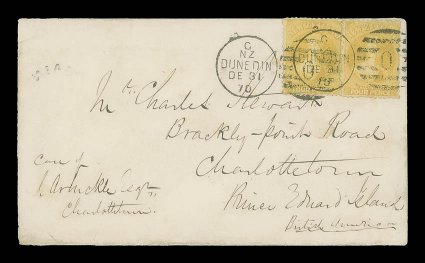 G
NZ
DUNEDIN
DE 31
70
G
DUNEDIN
DE 31
70
VIA
Mr. Charles Stewart
Brackly-point Road
Charlottetown
Prince Edward Island
British America
care of
Arbuckle Esqr
Charlottetown